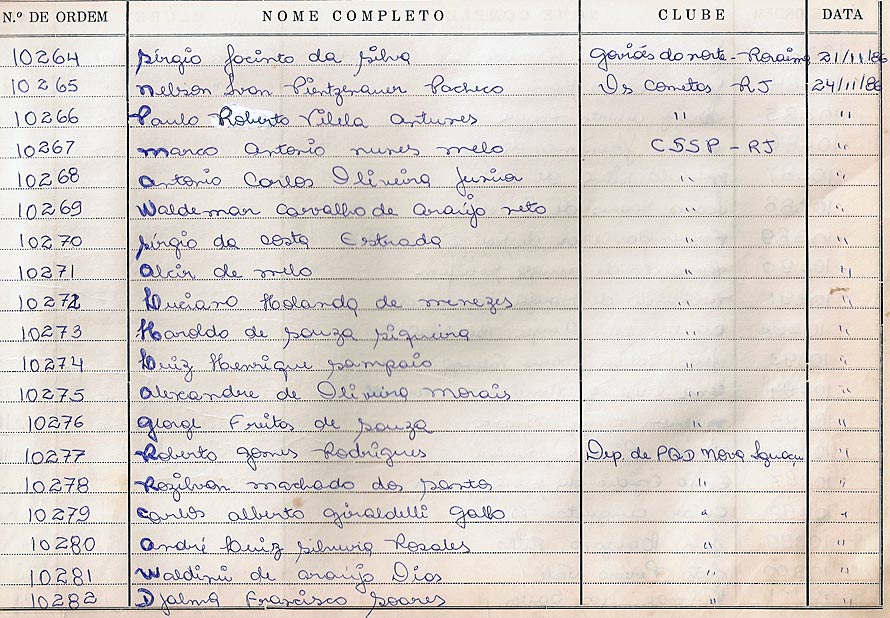 N.º DE ORDEM NOME COMPLETO CLUBE DATA
10264 Sérgio Jacinto da Silva Gaviões do norte - Roraima 21/11/86
10265 Nelson Ivan Pientzenauer Pacheco Os Cometas RJ 24/11/86
10266 Paulo Roberto Vilela Antunes " "
10267 Marco Antonio nunes melo CSSP - RJ "
10268 Antonio Carlos Oliveira Junior " "
10269 Waldemar Carvalho de Araújo neto " "
10270 Sérgio da Costa Estrada " "
10271 Alcir de melo " "
10272 Luciano Holanda de menezes " "
10273 Haroldo de Souza Siqueira " "
10274 Luiz Henrique Sampaio " "
10275 Alexandre de Oliveira Morais " "
10276 George Freitas de Souza " "
10277 Roberto Gomes Rodrigues Dep. de PQD Nova Iguaçu "
10278 Rozilvan machado dos Santos " "
10279 Carlos Alberto Giraldelli Gallo " "
10280 André Luiz Silveira Rosales " "
10281 Waldinei de Araújo Dias " "
10282 Djalma Francisco Soares " "